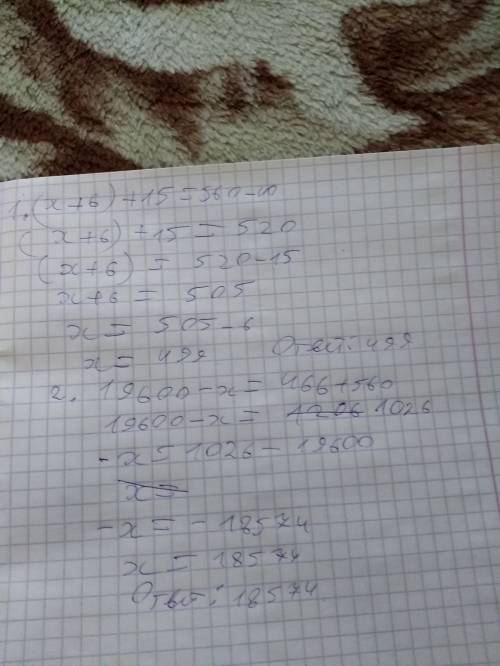 1. (x+6)+15=560-40
(x+6)+15=520
(x+6)=520-15
x+6=505
x=505-6
x=499 Ответ: 499
2. 19600-x=466+560
19600-x=1206 1026
-x=1026-19600
x=
-x=-18574
x=18574
Ответ: 18574